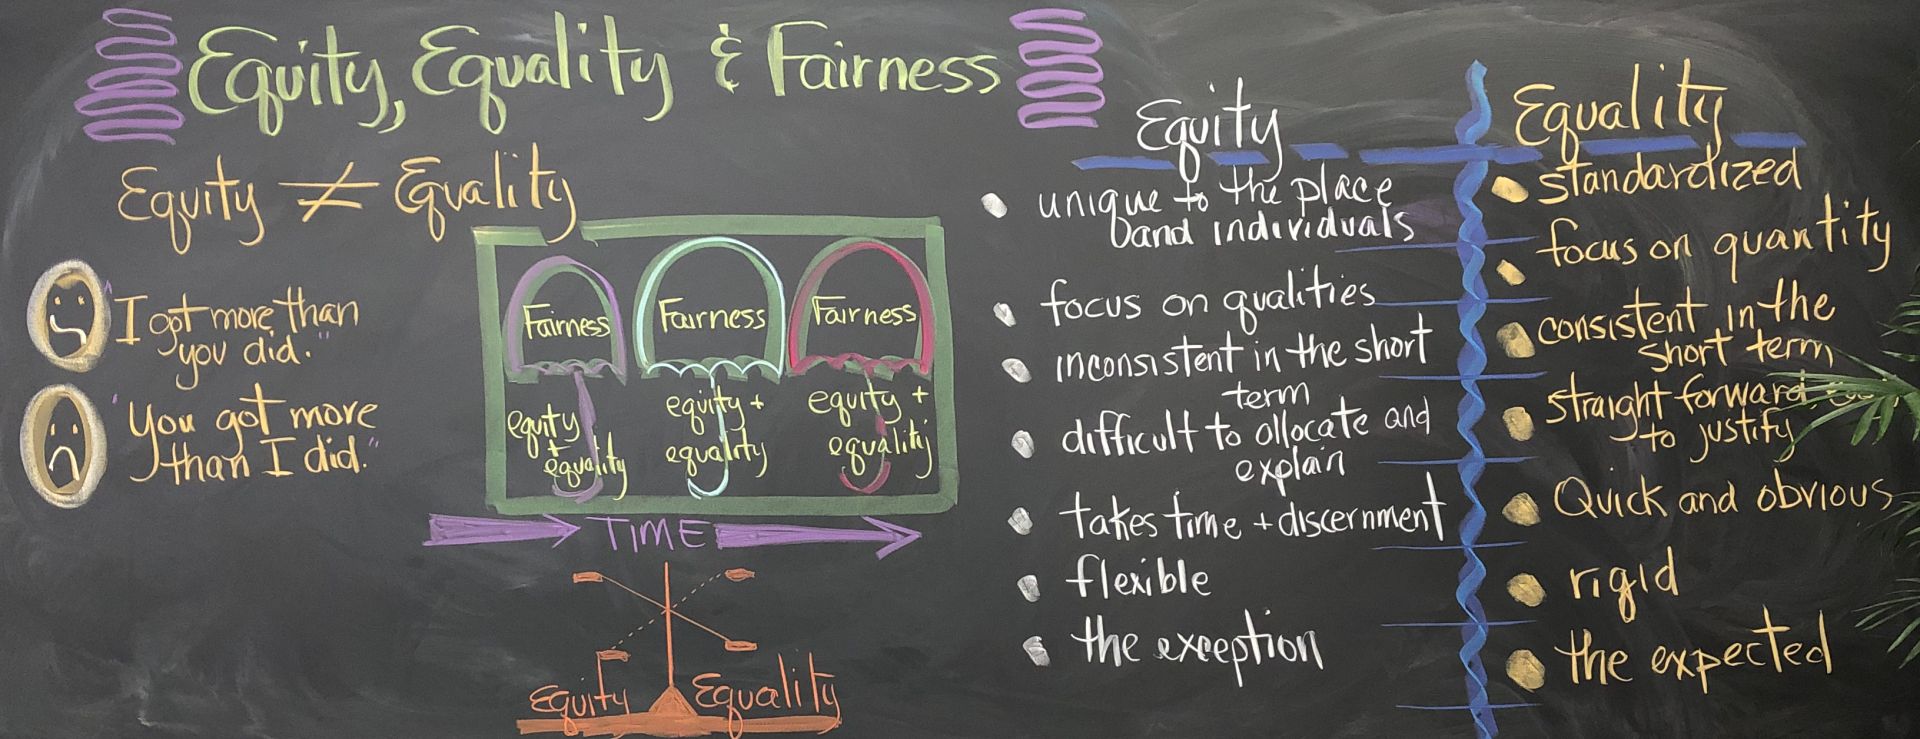 Equity, Equality & Fairness
Equity ≠ Equality
"I got more than
you did."
"You got more
than I did."
Fairness
equity
+
equality
Fairness
equity +
equality
Fairness
equity +
equality
TIME
Equity
Equality
Equity
unique to the place
and individuals
focus on qualities
inconsistent in the short
term
difficult to allocate and
explain
takes time + discernment
flexible
the exception
Equality
standardized
focus on quantity
consistent in the
short term
straight forward,
to justify
Quick and obvious
rigid
the expected